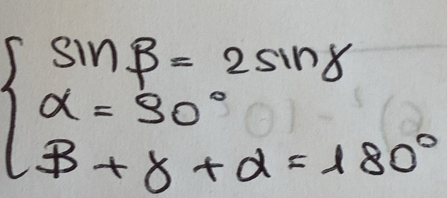 sin β = 2 sin γ
α = 90°
β + γ + α = 180°